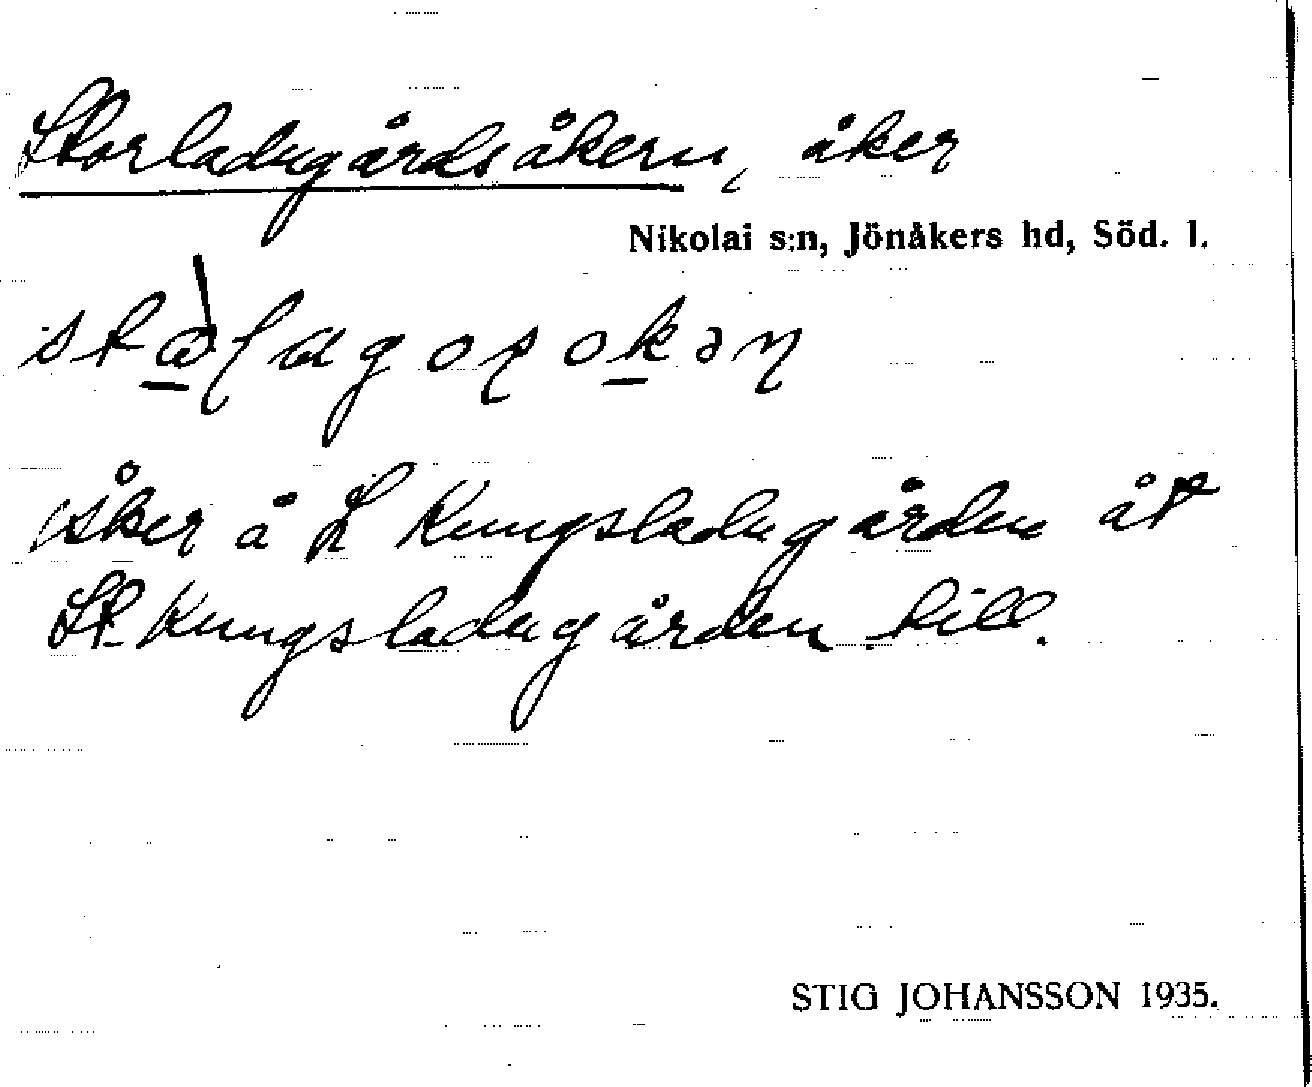 Storladugårdsåkern, åker
Nikolai s:n, Jönåkers hd, Söd. l.
Åker å L Kungsladugården åt
St. Kungsladugården till.
STIG JOHANSSON 1935.